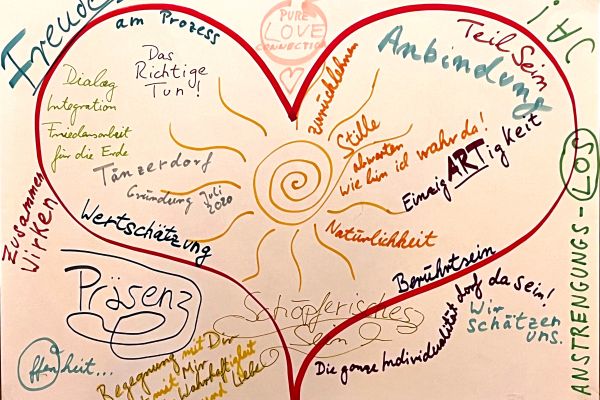 Freude
am Prozess
PURE
LOVE
CONNECTION
JA!
Das
Richtige
Tun!
Dialog
Integration
Friedensarbeit
für die Erde
Tänzerdorf
Gründung Juli
2020
Wertschätzung
Zusammen
Wirken
zurücklehnen
Stille
abwarten
wie bin ich wahr da!
Anbindung
Teil Sein
EinzigARTigkeit
Natürlichkeit
Berührtsein
ANSTRENGUNGS-LOS
Präsenz
Offenheit...
Schöpferisches
Sein
Begegnung mit Dir
mit Mir
Wahrhaftigkeit
und Liebe
Die ganze Individualität darf da sein!
Wir
schätzen
uns.